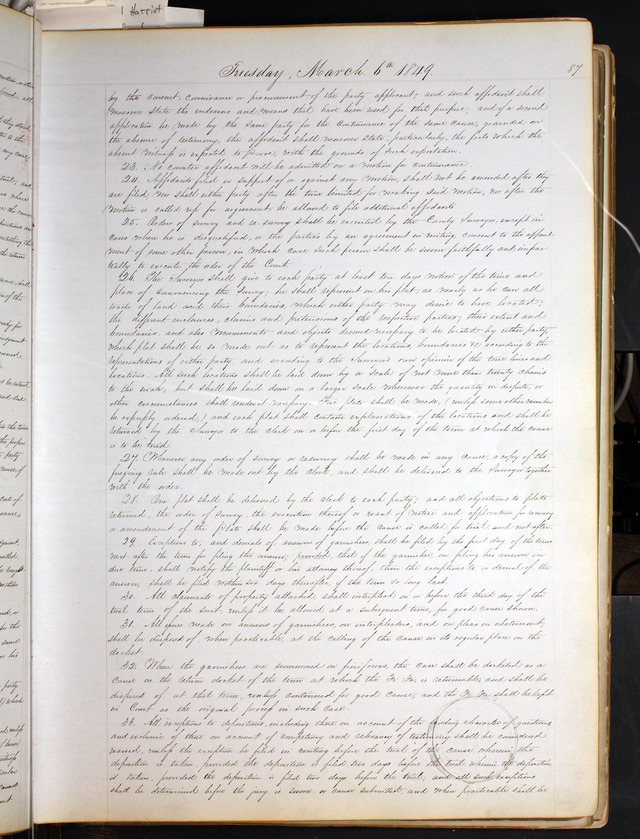 Harriet
Tuesday, March 6th 1849.
87
by the consent, connivance or procurement of the party applicant; and such affidavit shall
moreover state the endeavors and means that have been used for that purpose; and if a second
application be made by the same party for the continuance of the same cause, grounded on
the absence of testimony, the affidavit shall moreover state, particularly, the facts which the
absent witness is expected to prove, with the grounds of such expectation.
23. No counter affidavit will be admitted on a motion for continuance.
24. Affidavits filed in support of or against any motion, shall not be amended after they
are filed; nor shall either party after the time limited for making said motion, nor after the
motion is called up for argument, be allowed to file additional affidavits.
25. Orders of survey and re-survey shall be executed by the County Surveyor, except in
cases where he is disqualified, or the parties by an agreement in writing consent to the appoint
ment of some other person, in which case such person shall be sworn faithfully and impar
tially to execute the order of the Court.
26. The Surveyor shall give to each party at least ten days notice of the time and
place of commencing the survey; he shall represent on his plat, as nearly as he can all
tracts of land and their boundaries, which either party may desire to have located;
the different enclosures, claims and pretensions of the respective parties; their extent and
boundaries and also monuments and objects deemed necessary to be located by either party
which plat shall be so made out as to represent the locations, boundaries &c according to the
representations of either party, and according to the Surveyor's own opinion of the true lines and
locations. All such locations shall be laid down by a scale of not more than twenty chains
to the inch, but shall be laid down on a larger scale whenever the quantity in dispute, or
other circumstances shall render it necessary. Five plats shall be made, (unless some other number
be expressly ordered,) and each plat shall contain explanations of the locations and shall be
returned by the Surveyor to the clerk on or before the first day of the term at which the cause
is to be tried.
27. Whenever any order of survey or resurvey shall be made in any cause, a copy of the
foregoing rule shall be made out by the clerk, and shall be delivered to the Surveyor together
with the order.
28. One plat shall be delivered by the clerk to each party; and all objections to plats
returned, the order of survey, the execution thereof or want of notice and application for
or amendment of the plats shall be made before the cause is called for trial, and not after.
29. Exceptions to, and denials of answers of garnishees, shall be filed by the first day of the term
next after the term for filing the answer, provided, that if the garnishee on filing his answer in
due time, shall notify the plaintiff or his attorney thereof, then the exceptions to, or denial of the
answer, shall be filed within six days thereafter, if the term so long last.
30. All claimants of property attached shall interplead on or before the third day of the
trial term of the suit, unless it be allowed at a subsequent time, for good cause shown.
31. All issues made on answers of garnishees, on interpleaders, and on pleas in abatement,
shall be disposed of, when practicable, at the calling of the cause in its regular place on the
docket.
32. When the garnishees are summoned on fierifacias, the case shall be docketed as a
cause on the return docket of the term at which the Fi Fa is returnable; and shall be
disposed of at that term, unless continued for good cause; and the Fi Fa shall be kept
in Court as the original process in such case.
33. All exceptions to depositions, including those on account of the leading character of questions
and exclusive of those on account of competency and relevancy of testimony shall be considered
waived, unless the exception be filed in writing before the trial of the cause wherein the
deposition is taken, provided the deposition is filed two days before the trial wherein the deposition
is taken, provided the deposition is filed two days before the trial, and all such exceptions
shall be determined before the jury is sworn or cause submitted, and when practicable shall be